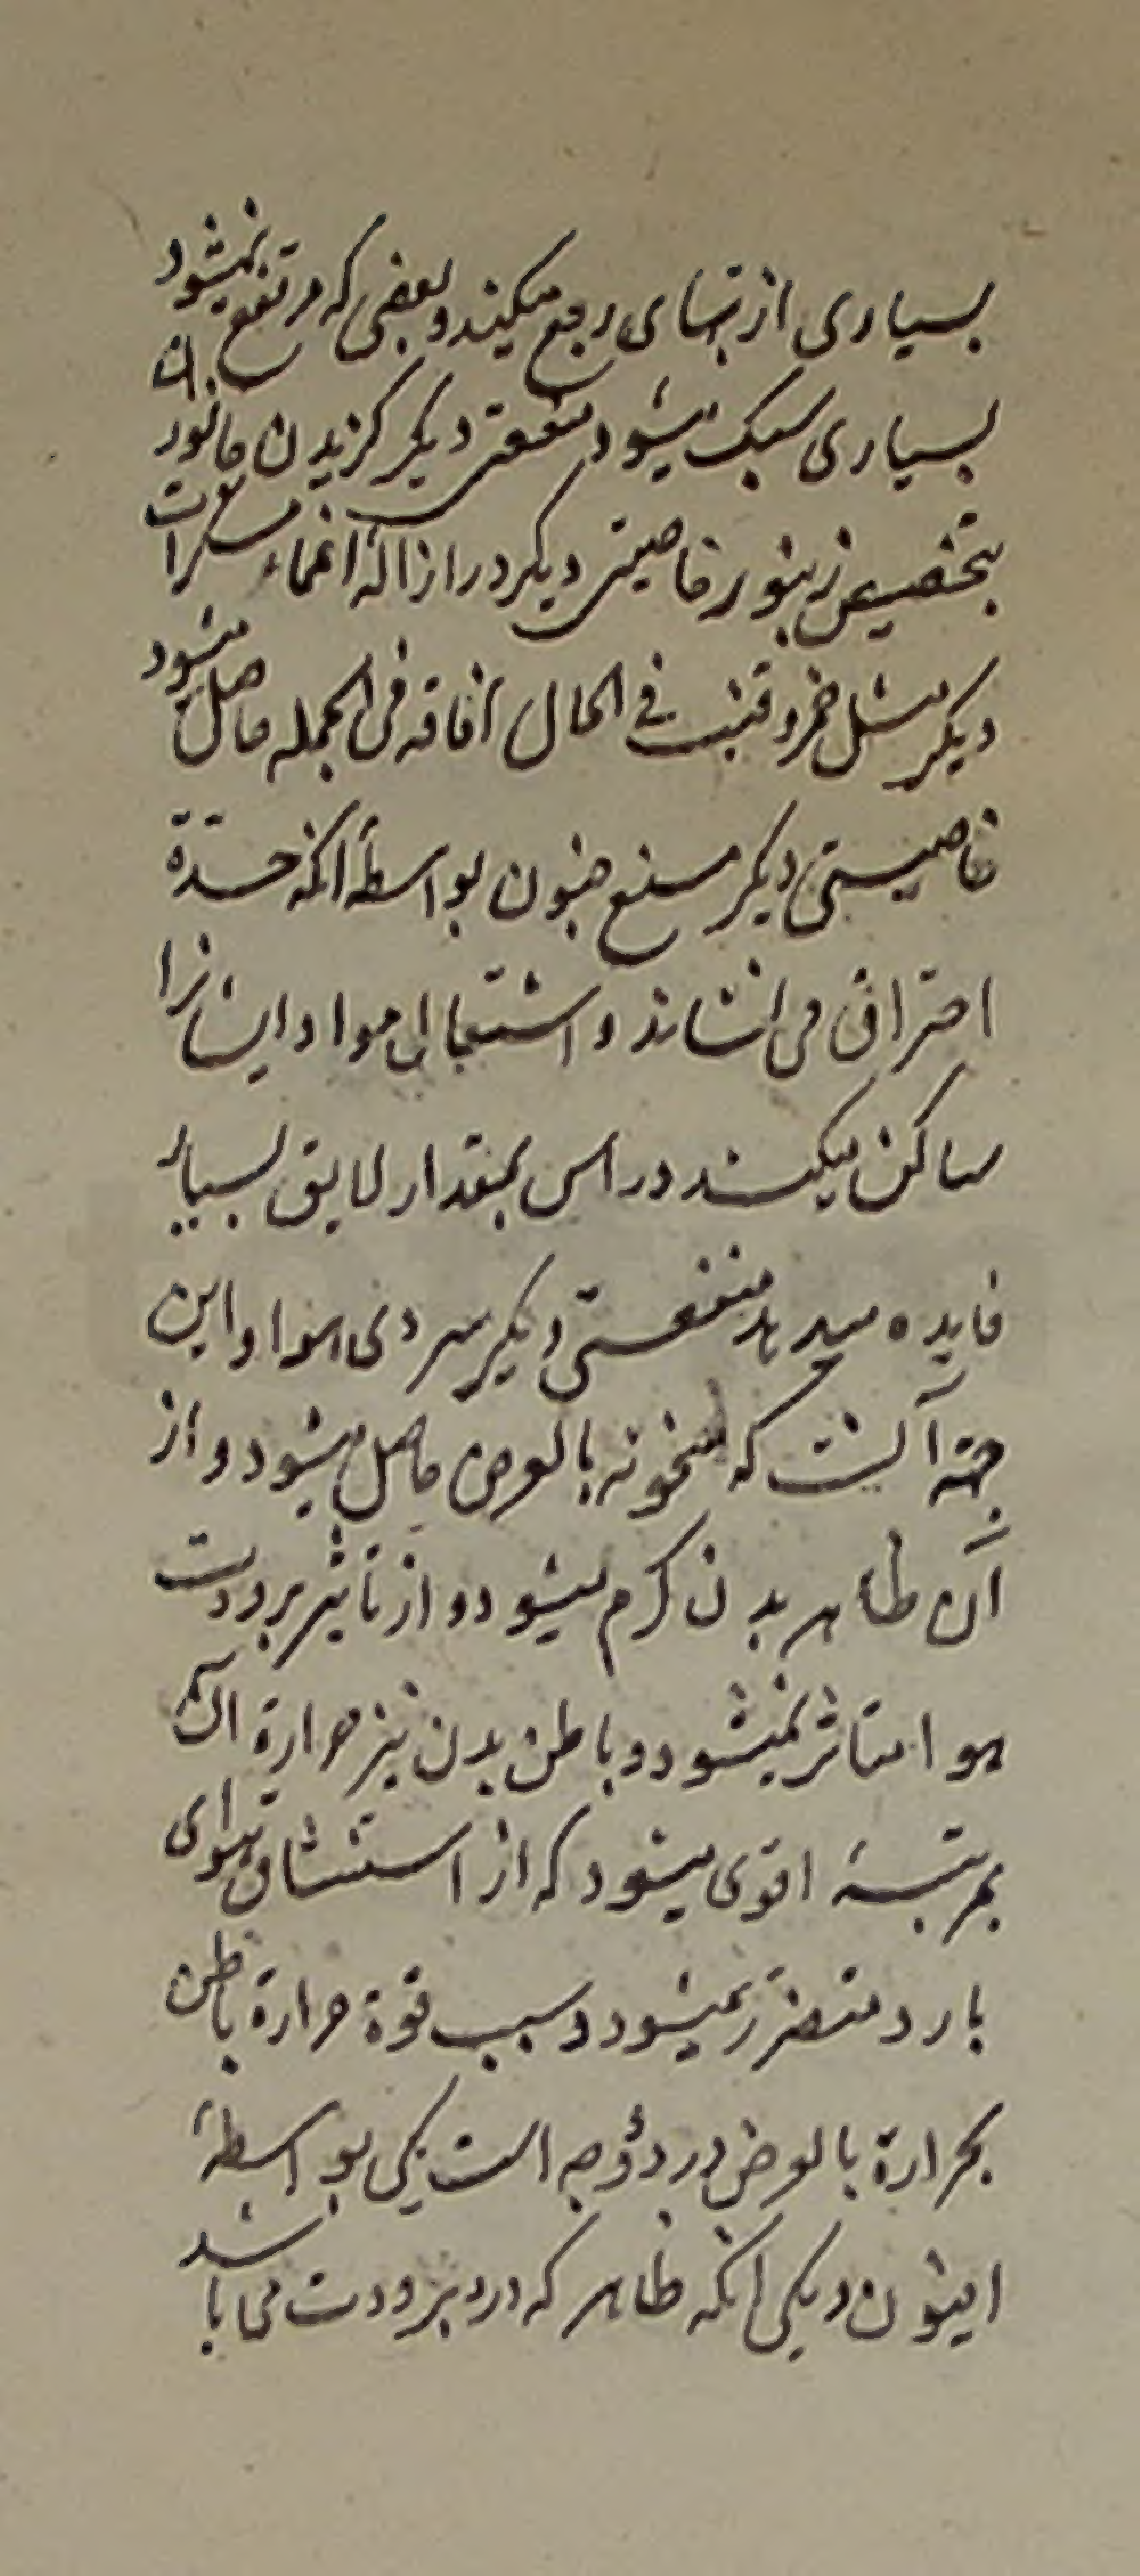 بسیاری از تبهای ربع میکند و بعضی که مرتفع نمیشود
بسیاری سبک میشود منفعتی دیکر کزیدن جانوران
بتخصیص زنبور خاصیتی دیکر در ازاله اغماء مسکرات
دیکر مثل خمر و قنب فی الحال افاقه فی الجمله حاصل میشود
خاصیتی دیکر منع جنون بواسطهٔ انکه حدّة
احتراق می نشاند و اشتعال مواد ایشانرا
ساکن میکند در اس بمقدار لایق بسیار
فایده میدهد منفعتی دیکر سردی هوا و این
جهة آنست که سخونه بالعرض حاصل میشود و از
آن ظاهر بدن کرم میشود و از تاثیر برودت
هوا متاثر نمیشود و باطن بدن نیز حرارة آن
بمرتبهٔ اقوی میشود که از استنشاق هوای
بارد متضرر نمیشود و سبب قوة حرارة باطن
بحرارة بالعرض در دو وجه است یکی بواسطهٔ
افیون و یکی انکه ظاهر که درو برودت می باشد